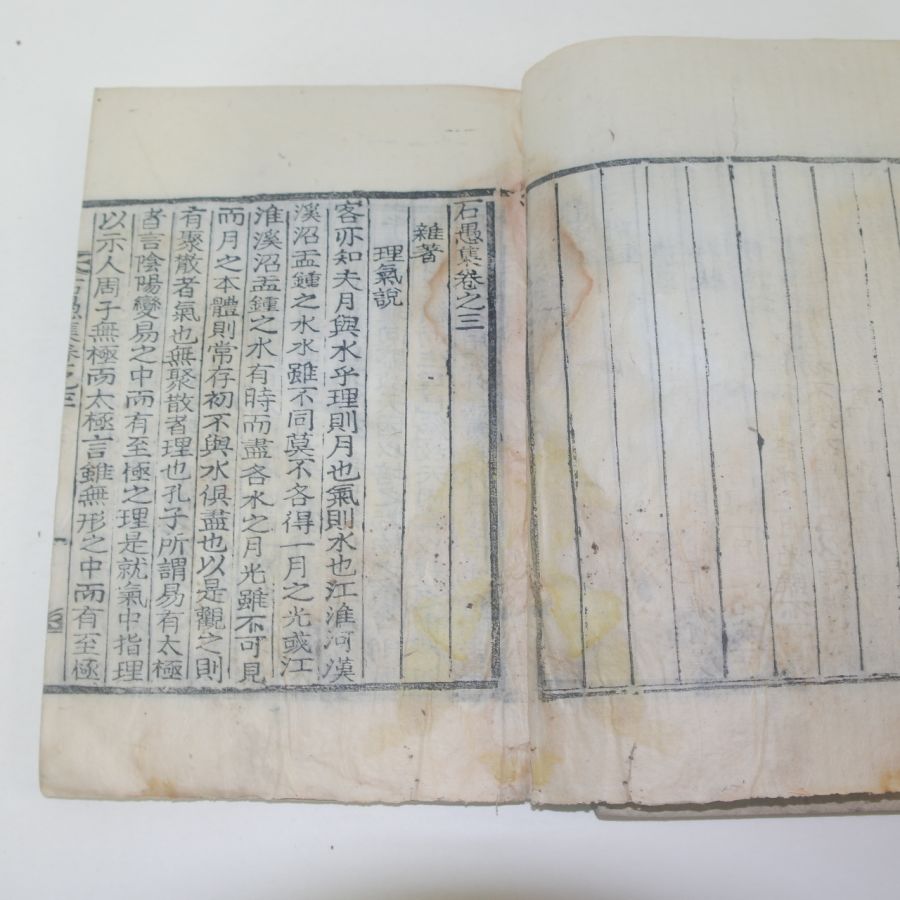 石愚集卷之三
雜著
理氣說
客亦知夫月與水乎理則月也氣則水也江淮河漢
溪沼盂鍾之水水雖不同莫不各得一月之光或江
淮溪沼盂鍾之水有時而盡各水之月光雖不可見
而月之本體則常存初不與水俱盡也以是觀之則
有聚散者氣也無聚散者理也孔子所謂易有太極
者言陰陽變易之中而有至極之理是就氣中指理
以示人周子無極而太極言雖無形之中而有至極